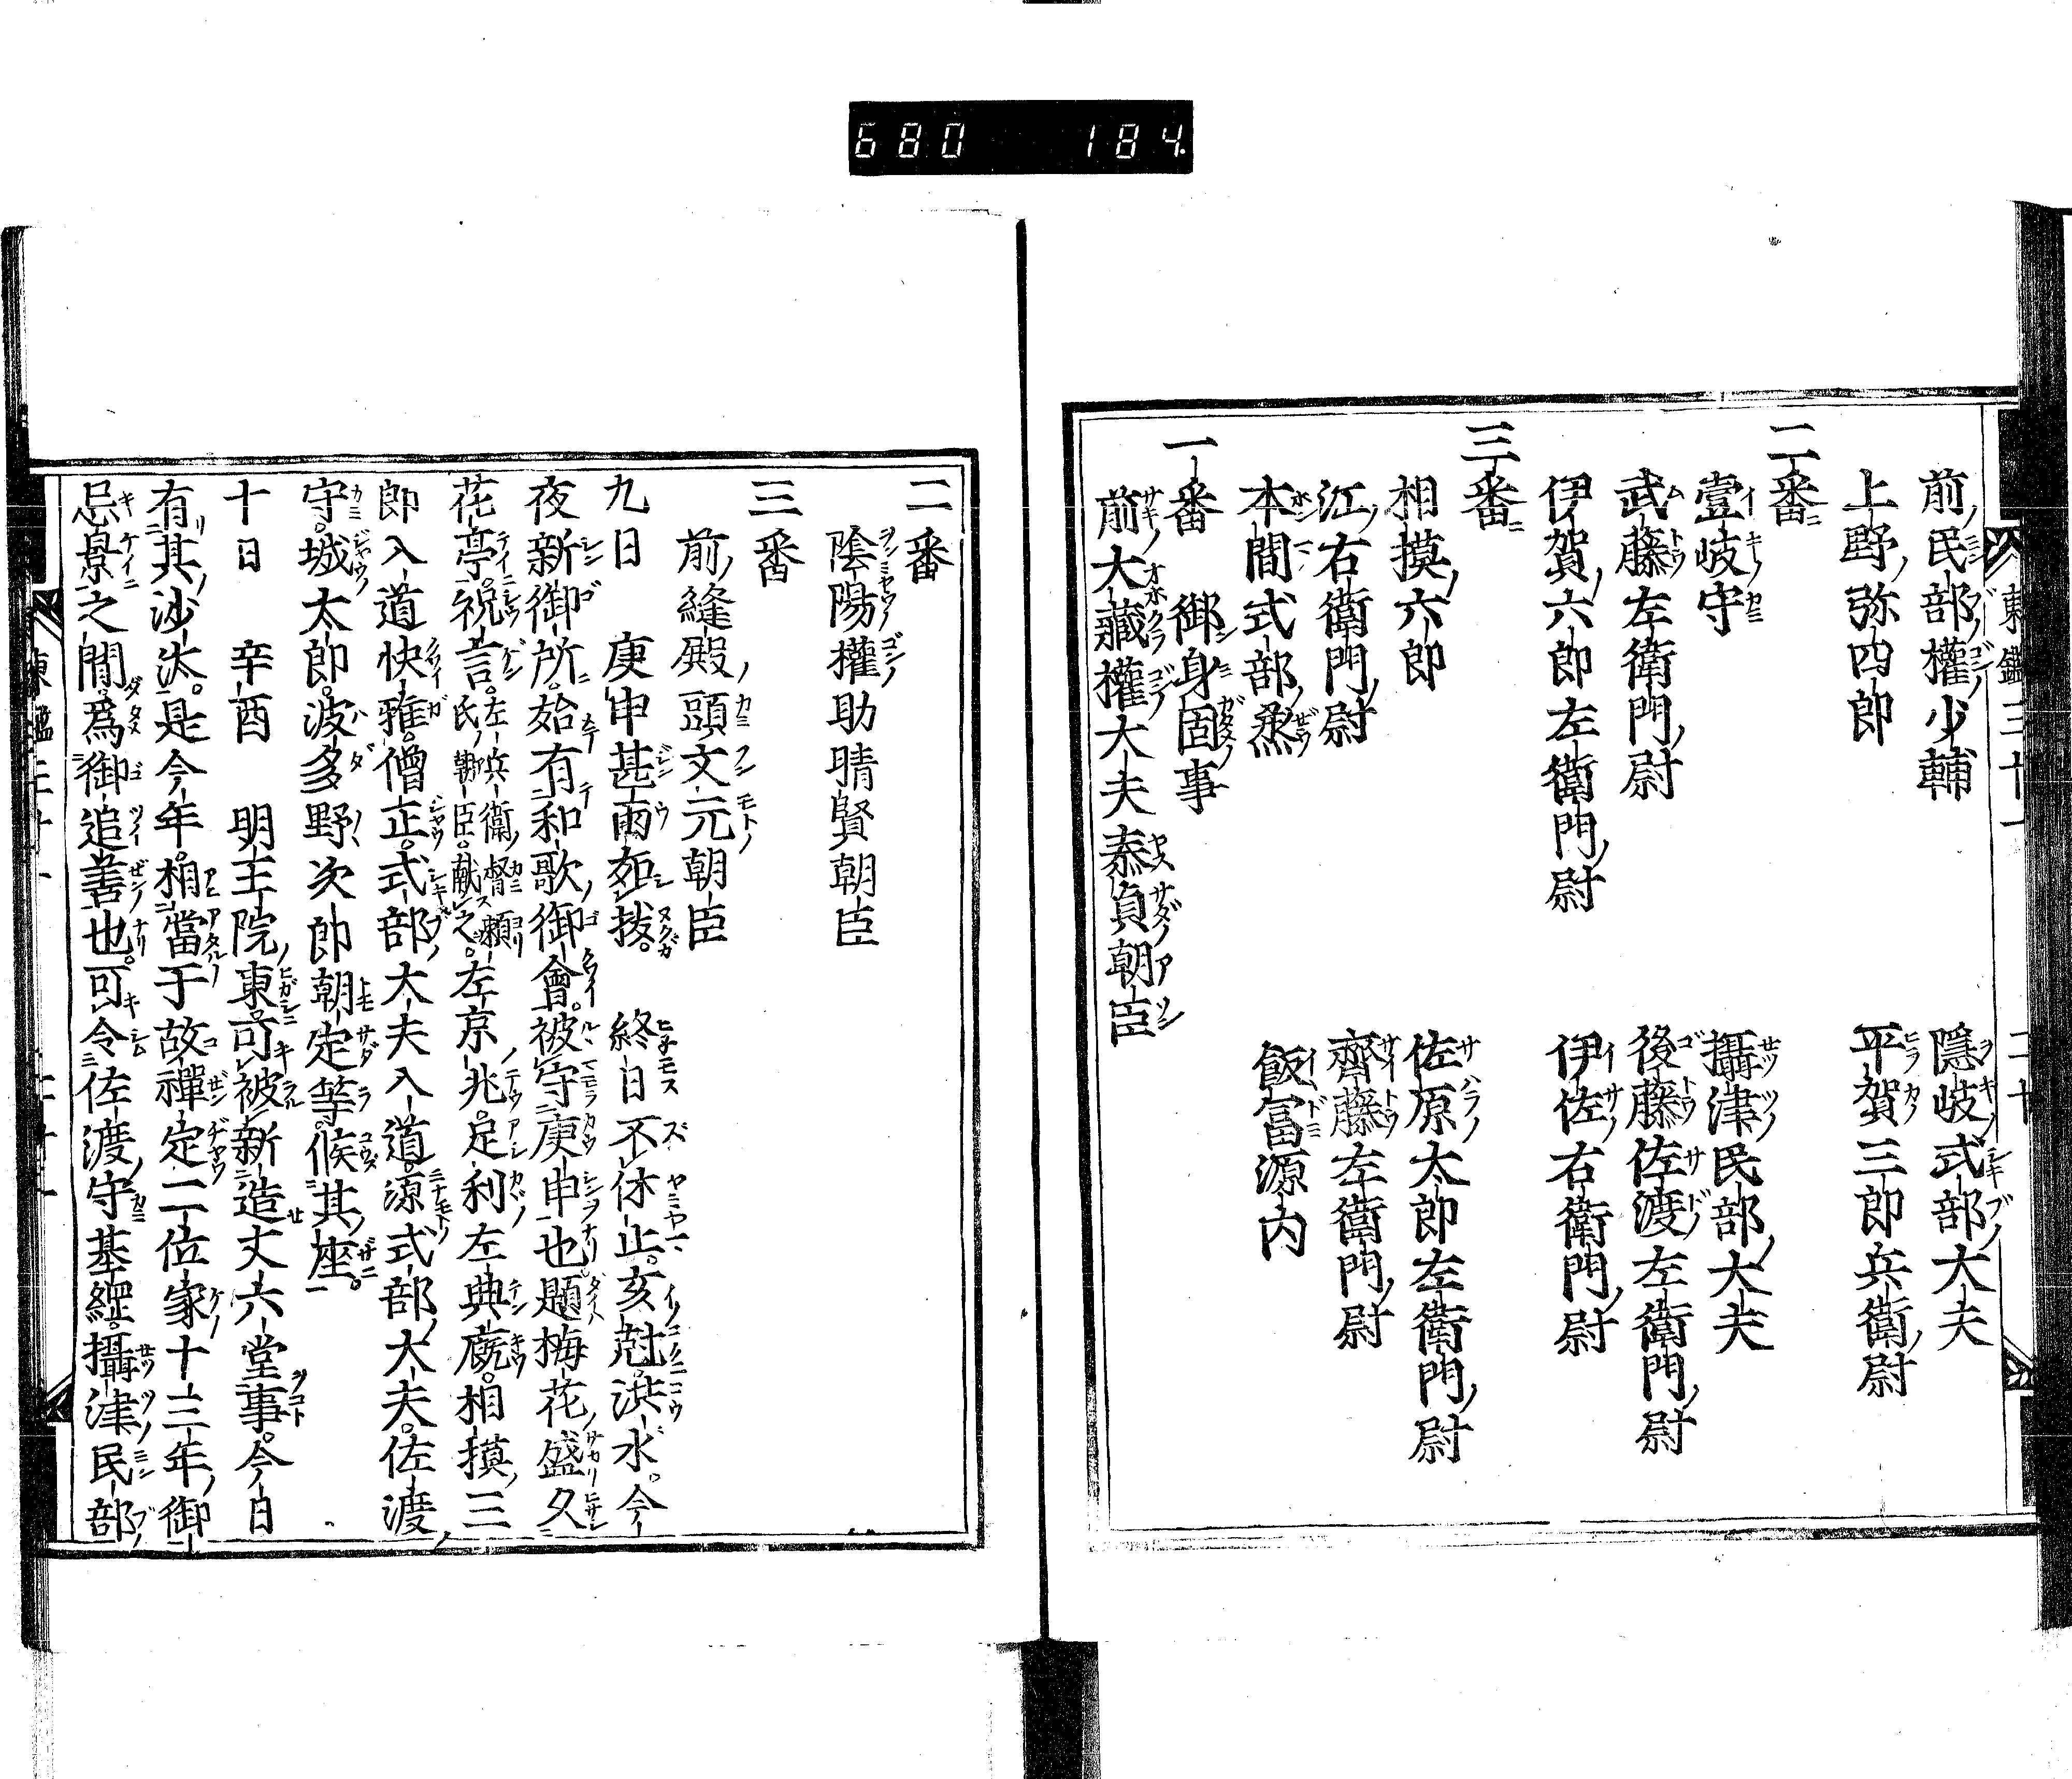 680 184
東鑑三十一 二十
前民部權少輔 隱岐式部大夫
上野弥四郎 平賀三郎兵衛尉
二番
壹岐守 攝津民部大夫
武藤左衛門尉 後藤佐渡左衛門尉
伊賀六郎左衛門尉 伊佐右衛門尉
三番
相摸六郎 佐原太郎左衛門尉
江右衛門尉 齊藤左衛門尉
本間式部烝 飯冨源内
一番 御身固事
前大藏權大夫泰貞朝臣
二番
陰陽權助晴賢朝臣
三番
前縫殿頭文元朝臣
九日 庚申甚雨如拔。 終日不休止。亥尅。洪水。今
夜新御所。始有和歌御會。被守庚申也題梅花盛久
花亭祝言。左兵衛督頼氏朝臣。献之。左京兆。足利左典廐。相摸三
郎入道快雅僧正。式部大夫入道。源式部大夫。佐渡
守。城太郎。波多野次郎朝定等。候其座。
十日 辛酉 明王院東可被新造丈六堂事。今日
有其沙汰。是今年。相當于故禪定二位家十三年御
忌景之間。爲御追善也。可令佐渡守基綱。攝津民部
東鑑三十一